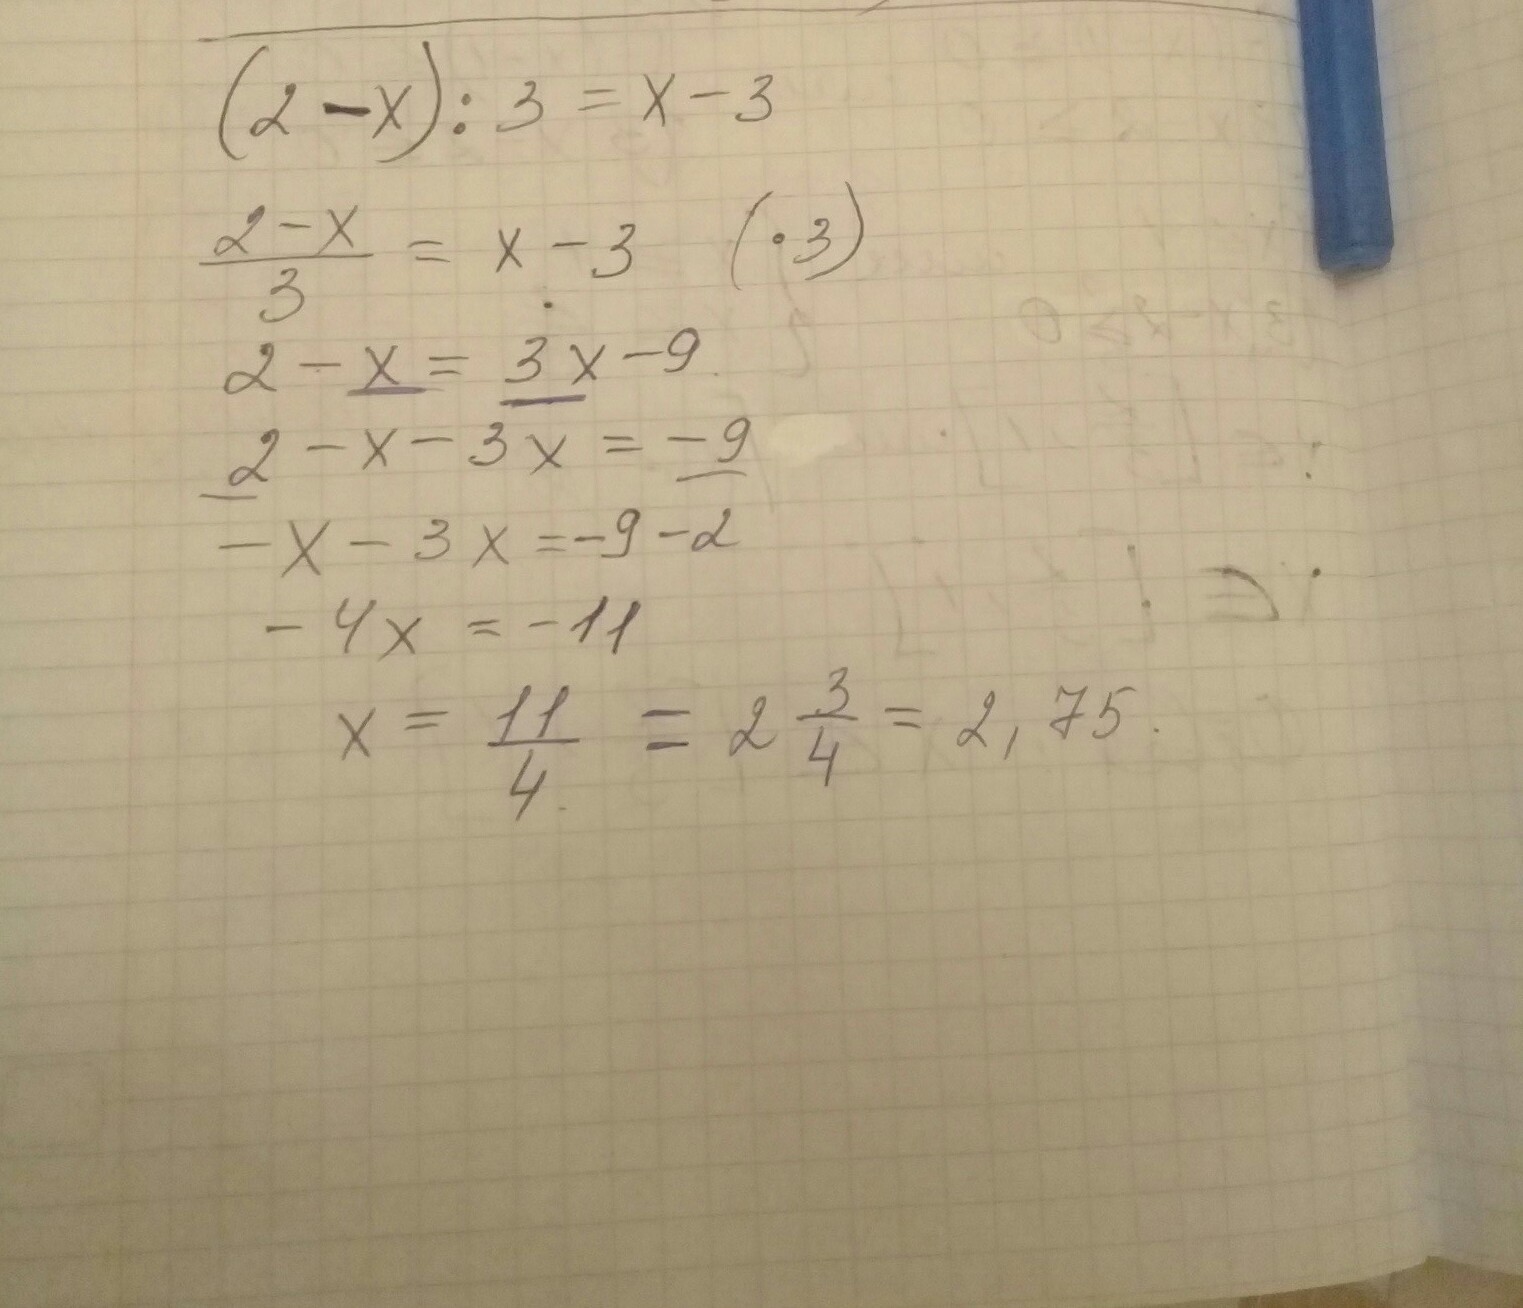 (2-x):3=x-3
2-x/3 = x-3 (·3)
2-x=3x-9
2-x-3x=-9
-x-3x=-9-2
-4x=-11
x=11/4=2 3/4=2,75.